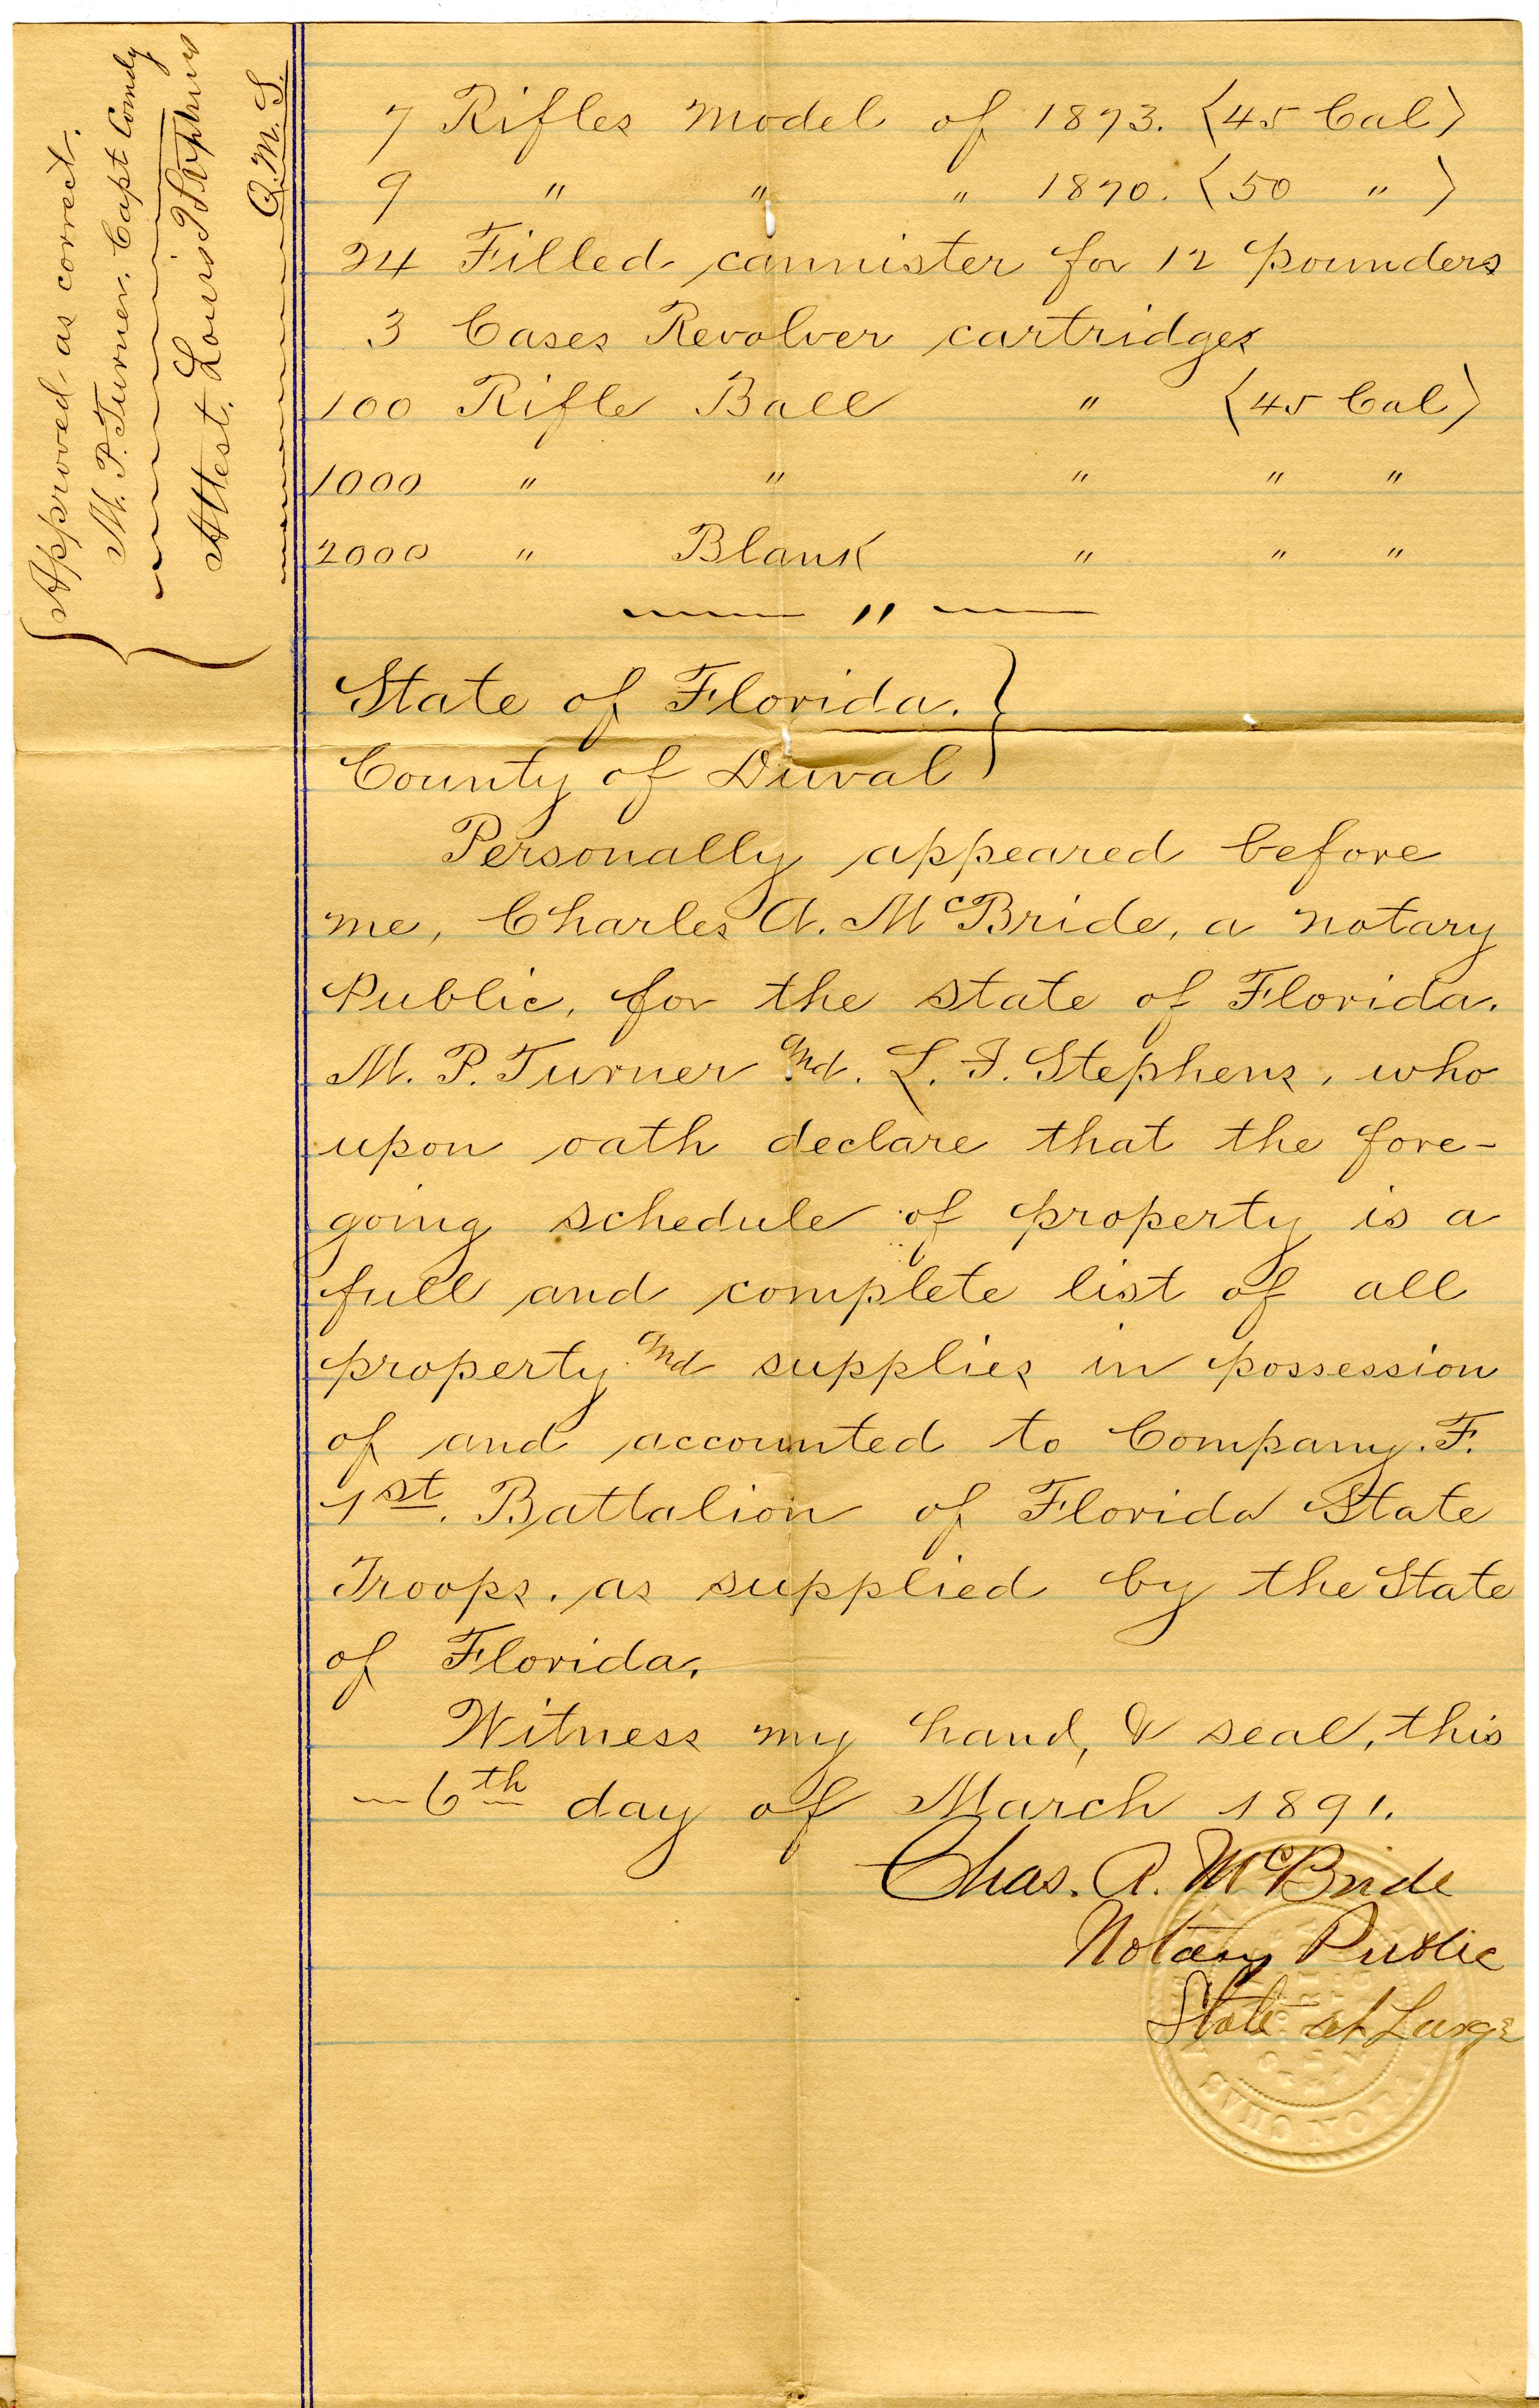 7 Rifles Model of 1873. (45 Cal)
9 " " " 1870. (50 " )
24 Filled cannister for 12 pounders
3 Cases Revolver cartridges
100 Rifle Ball " (45 Cal)
1000 " " " " "
2000 " Blank " " "
— " —
State of Florida. }
County of Duval }
Personally appeared before
me, Charles A. McBride, a notary
Public, for the state of Florida.
M. P. Turner and. L. F. Stephens, who
upon oath declare that the fore-
going schedule of property is a
full and complete list of all
property and supplies in possession
of and accounted to Company. F.
1st. Battalion of Florida State
Troops. as supplied by the State
of Florida.
Witness my hand, & seal, this
—6th— day of March 1891.
Chas. A. McBride
Notary Public
State at Large
Approved as correct.
M. P. Turner. Capt Comdg
Attest. Louis F Stephens
Q. M. S.